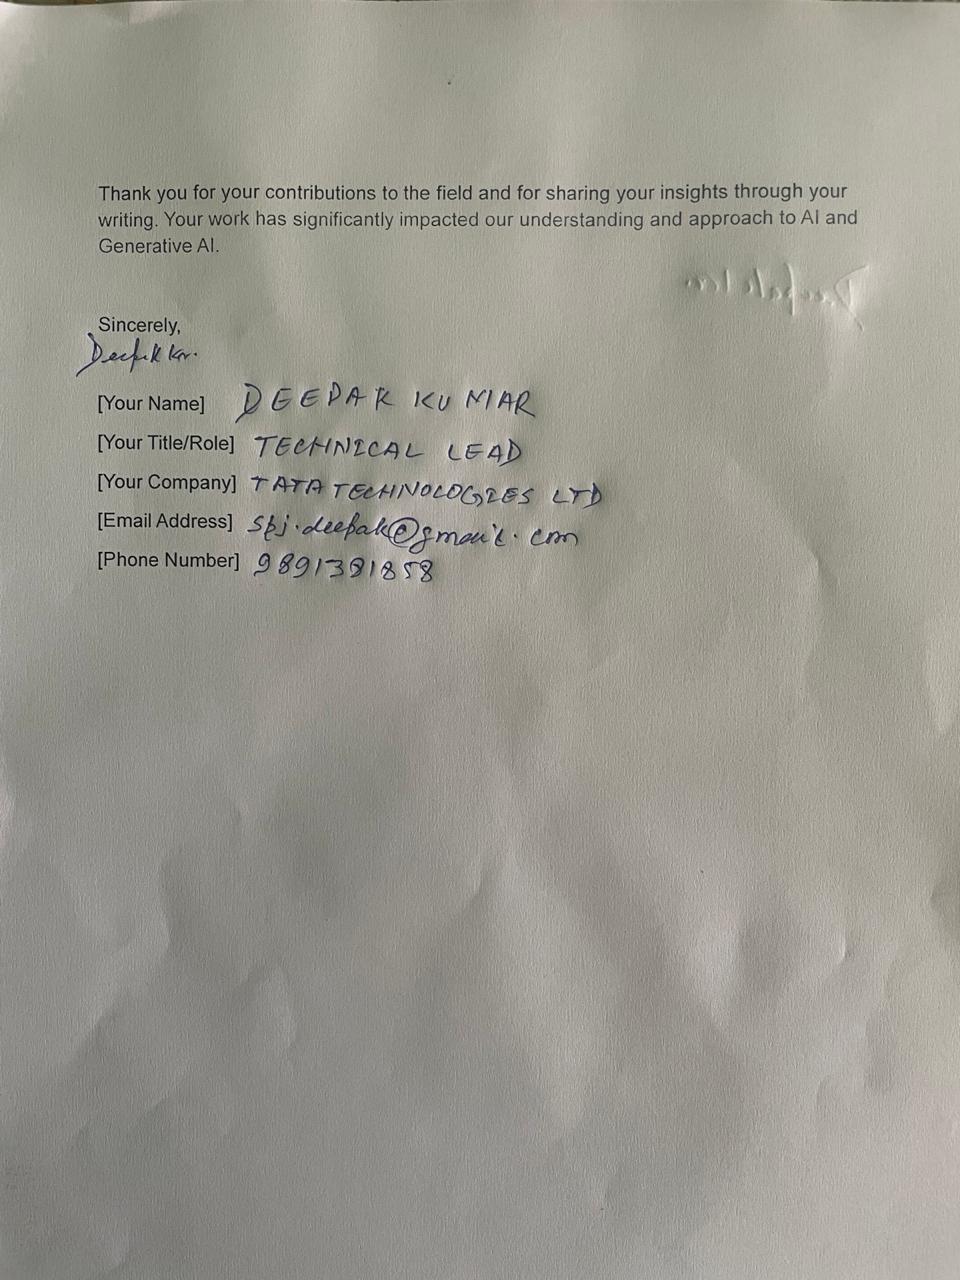 Thank you for your contributions to the field and for sharing your insights through your
writing. Your work has significantly impacted our understanding and approach to AI and
Generative AI.
Sincerely,
Deepak Kr.
[Your Name] DEEPAK KUMAR
[Your Title/Role] TECHNICAL LEAD
[Your Company] TATA TECHNOLOGIES LTD
[Email Address] spj.deepak@gmail.com
[Phone Number] 9891381858